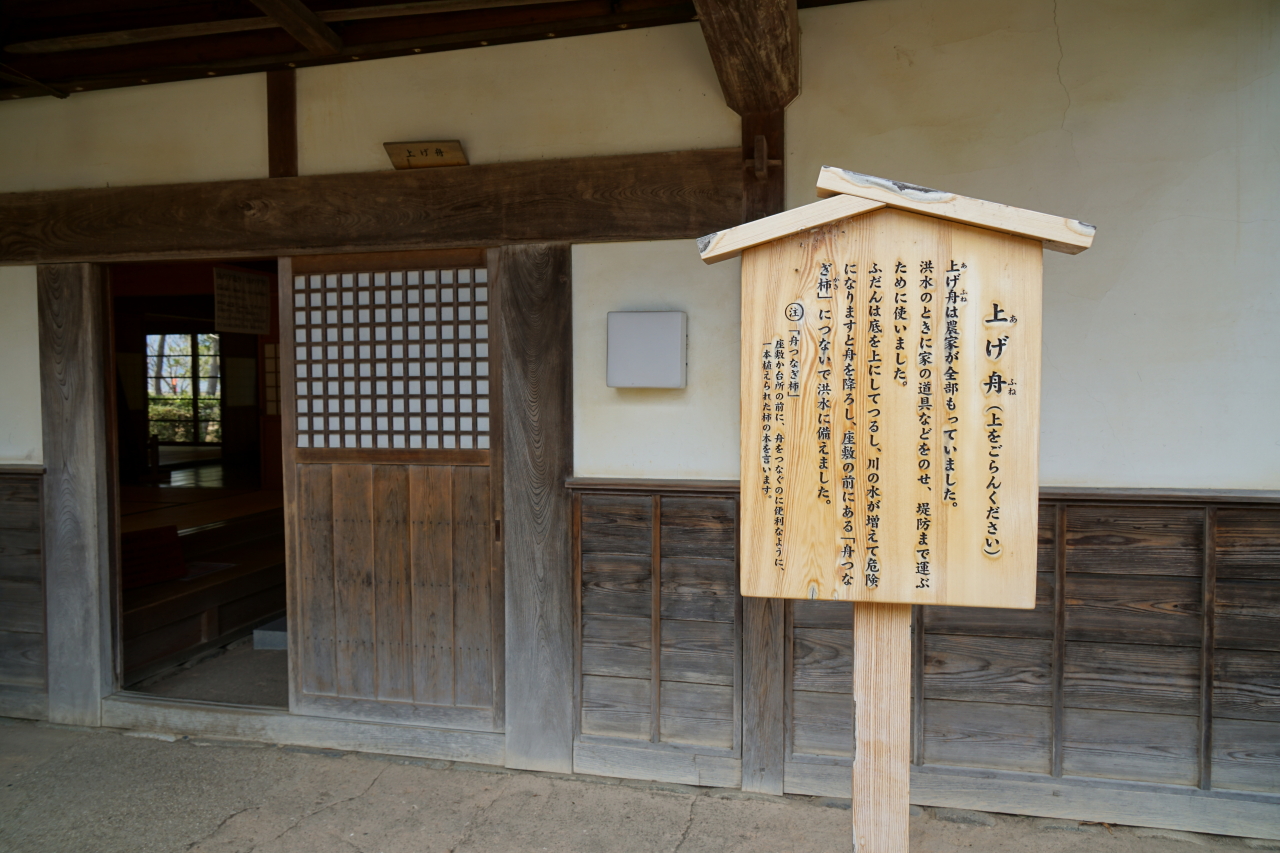 上げ舟
上げ舟（上をごらんください）
上げ舟は農家が全部もっていました。
洪水のときに家の道具などをのせ、堤防まで運ぶ
ために使いました。
ふだんは底を上にしてつるし、川の水が増えて危険
になりますと舟を降ろし、座敷の前にある「舟つな
ぎ柿」につないで洪水に備えました。
注「舟つなぎ柿」
座敷か台所の前に、舟をつなぐのに便利なように、
一本植えられた柿の木を言います。